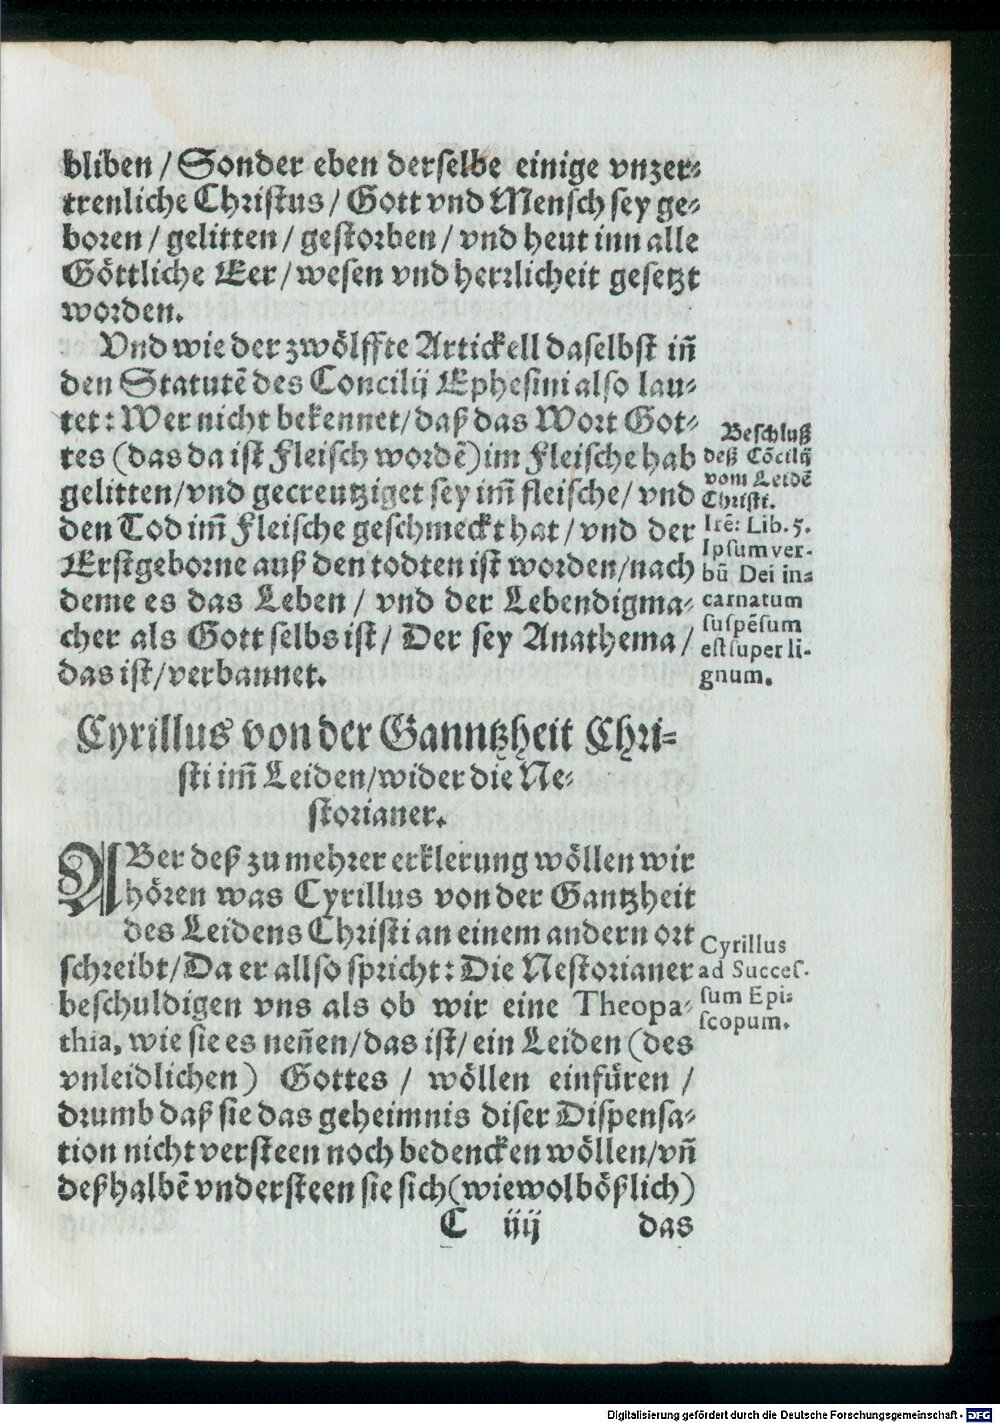 bliben / Sonder eben derselbe einige vnzer⸗
trenliche Christus / Gott vnd Mensch sey ge⸗
boren / gelitten / gestorben / vnd heut inn alle
Göttliche Eer / wesen vnd herrlicheit gesetzt
worden.
Vnd wie der zwölffte Artickell daselbst iñ
den Statutē des Concilij Ephesini also lau⸗
tet: Wer nicht bekennet / daß das Wort Got⸗
tes (das da ist Fleisch wordē) im Fleische hab
gelitten / vnd gecreutziget sey im̃ fleische / vnd
den Tod im̃ Fleische geschmeckt hat / vnd der
Erstgeborne auß den todten ist worden / nach
deme es das Leben / vnd der Lebendigma⸗
cher als Gott selbs ist / Der sey Anathema /
das ist / verbannet.
Beschluß
deß Cōcilij
vom Leidē
Christi.
Irē: Lib. 5.
Ipsum ver-
bū Dei in⸗
carnatum
suspēsum
est super li-
gnum.
Cyrillus von der Ganntzheit Chri⸗
sti im̃ Leiden / wider die Ne⸗
storianer.
ABer deß zu mehrer erklerung wöllen wir
hören was Cyrillus von der Gantzheit
des Leidens Christi an einem andern ort
schreibt / Da er allso spricht: Die Nestorianer
beschuldigen vns als ob wir eine Theopa⸗
thia, wie sie es neñen / das ist / ein Leiden (des
vnleidlichen) Gottes / wöllen einfüren /
drumb daß sie das geheimnis diser Dispensa⸗
tion nicht versteen noch bedencken wöllen / vñ
deßhalbē vndersteen sie sich (wiewol bößlich)
Cyrillus
ad Succes-
sum Epi⸗
scopum.
C iiij das
Digitalisierung gefördert durch die Deutsche Forschungsgemeinschaft - DFG